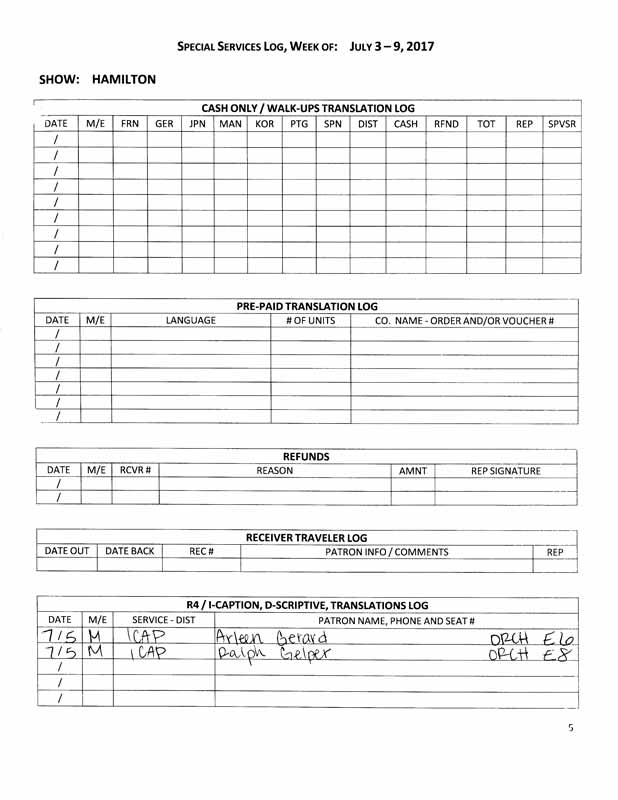 SPECIAL SERVICES LOG, WEEK OF: JULY 3 – 9, 2017
SHOW: HAMILTON
CASH ONLY / WALK-UPS TRANSLATION LOG
DATE M/E FRN GER JPN MAN KOR PTG SPN DIST CASH RFND TOT REP SPVSR
/
/
/
/
/
/
/
/
/
PRE-PAID TRANSLATION LOG
DATE M/E LANGUAGE # OF UNITS CO. NAME - ORDER AND/OR VOUCHER #
/
/
/
/
/
/
/
REFUNDS
DATE M/E RCVR # REASON AMNT REP SIGNATURE
/
/
RECEIVER TRAVELER LOG
DATE OUT DATE BACK REC # PATRON INFO / COMMENTS REP
R4 / I-CAPTION, D-SCRIPTIVE, TRANSLATIONS LOG
DATE M/E SERVICE - DIST PATRON NAME, PHONE AND SEAT #
7/5 M ICAP Arleen Gerard ORCH E6
7/5 M ICAP Ralph Gelper ORCH E8
/
/
/
5